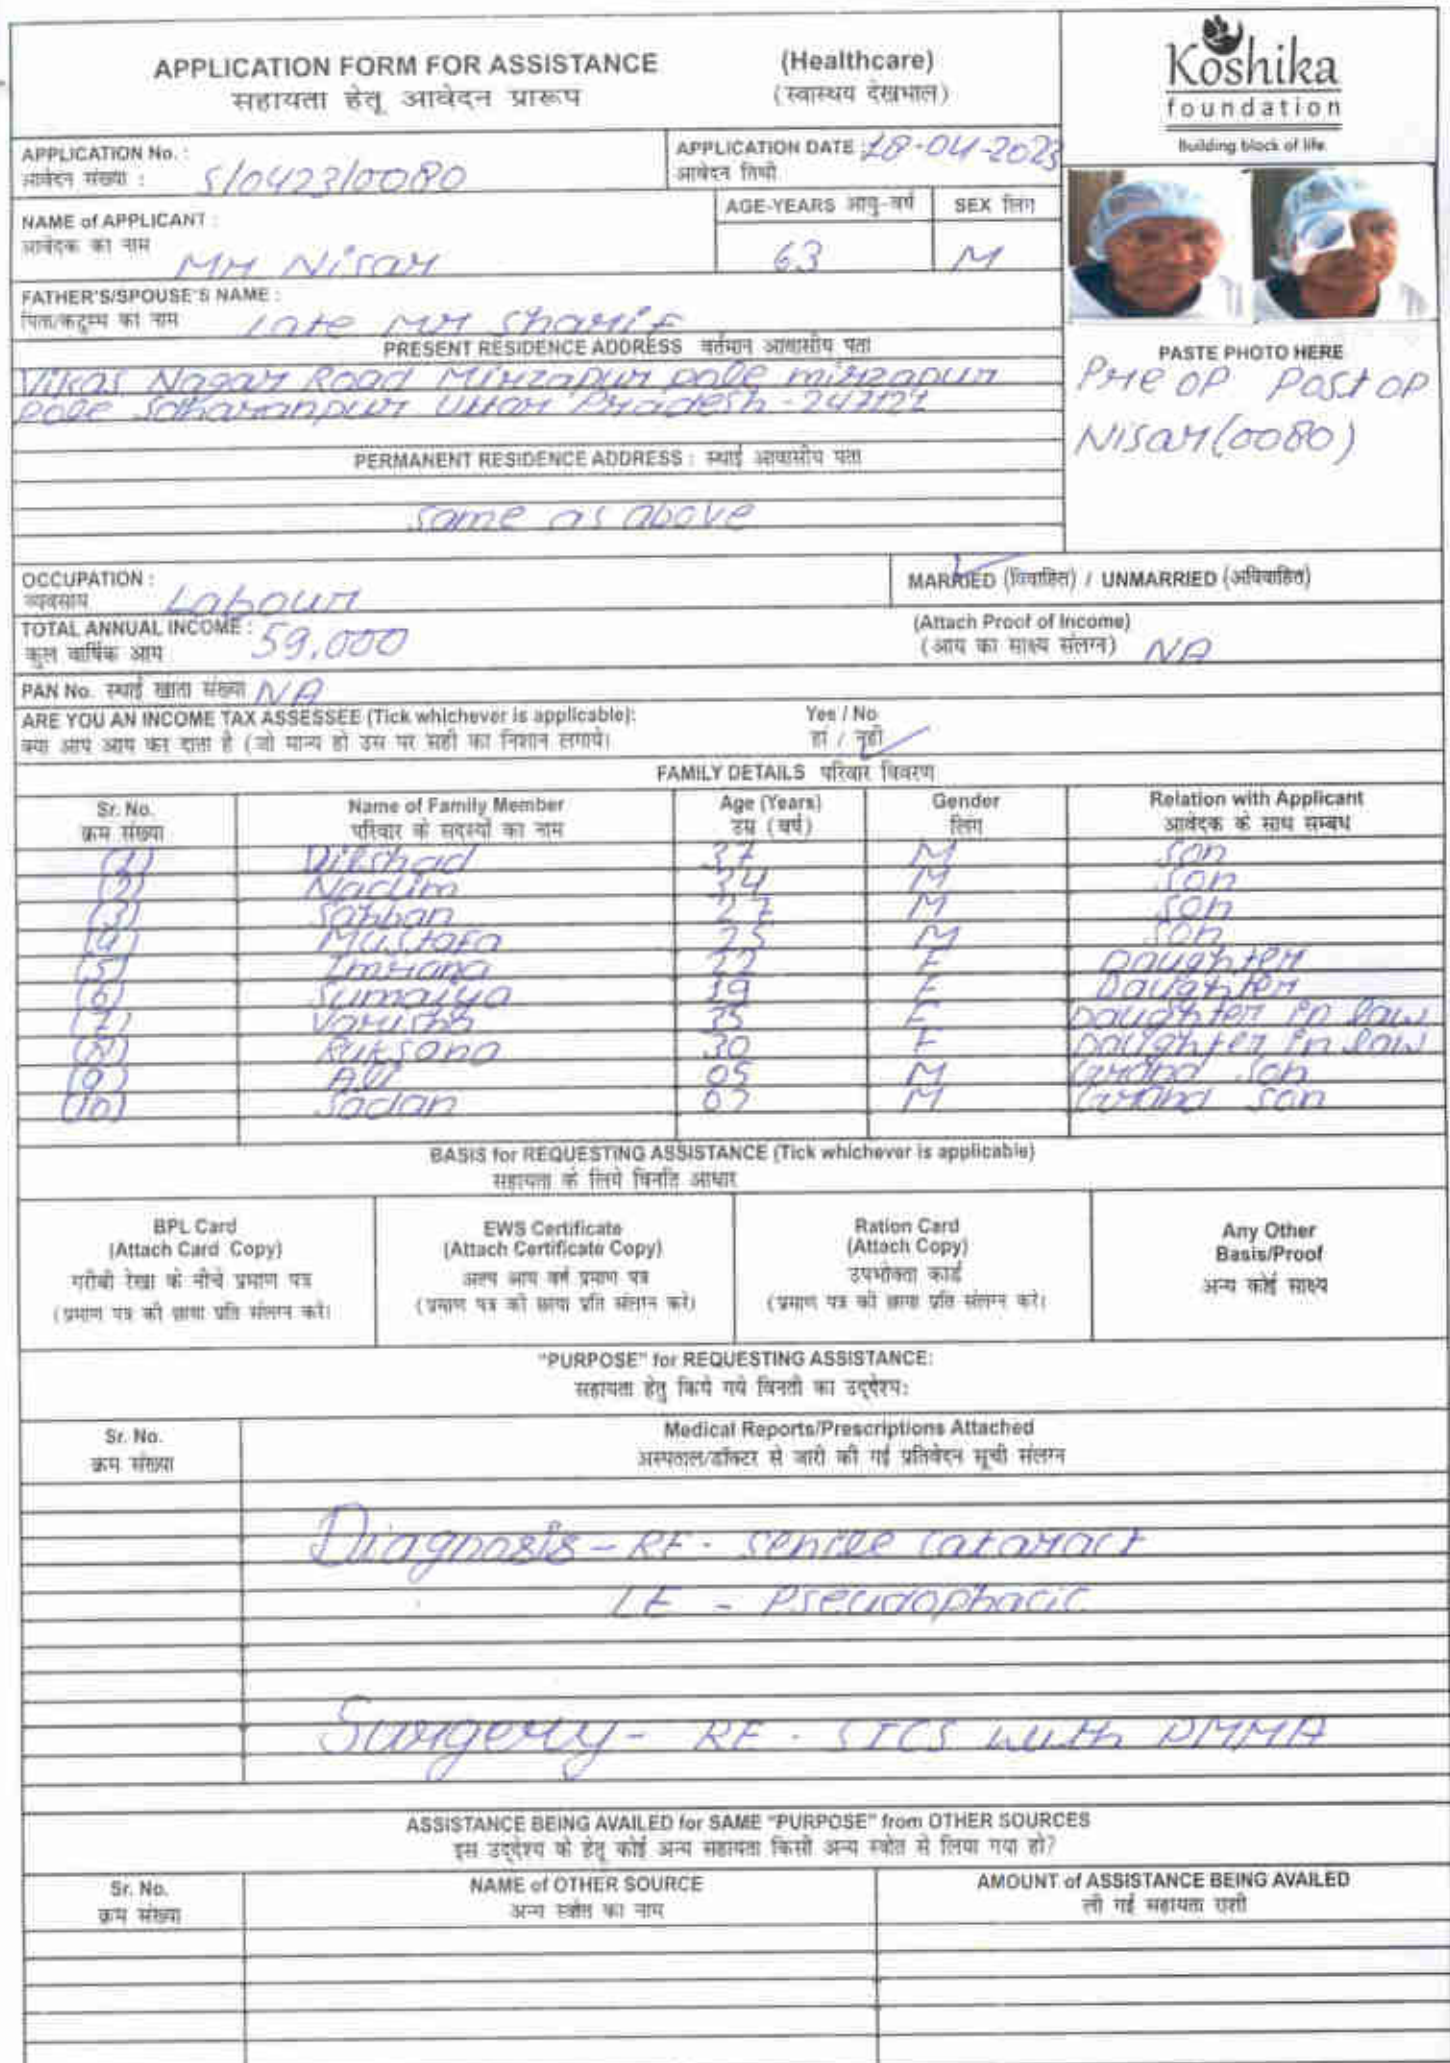 APPLICATION FORM FOR ASSISTANCE (Healthcare)
सहायता हेतू आवेदन प्रारूप (स्वास्थय देखभाल)
Koshika
foundation
Building block of life
APPLICATION No. : S/0423/0080
आवेदन संख्या :
APPLICATION DATE : 18-04-2023
आवेदन तिथी
NAME of APPLICANT :
आवेदक का नाम
Mr Nisar
AGE-YEARS आयु-वर्ष
63
SEX लिंग
M
FATHER'S/SPOUSE'S NAME :
पिता/कटुम्ब का नाम
Late Mr Sharif
PRESENT RESIDENCE ADDRESS वर्तमान आवासीय पता
Vikas Nagar Road Mirzapur pole mirzapur
pole Saharanpur Uttar Pradesh-247121
PASTE PHOTO HERE
Pre op Post op
Nisar (0080)
PERMANENT RESIDENCE ADDRESS : स्थाई आवासीय पता
same as above
OCCUPATION :
व्यवसाय
Labour
MARRIED (विवाहित) / UNMARRIED (अविवाहित)
TOTAL ANNUAL INCOME : 59,000
कुल वार्षिक आय
(Attach Proof of Income)
(आय का साक्ष्य संलग्न) NA
PAN No. स्थाई खाता संख्या NA
ARE YOU AN INCOME TAX ASSESSEE (Tick whichever is applicable): Yes / No
क्या आप आय कर दाता है (जो मान्य हो उस पर सही का निशान लगाये। हां / नही
FAMILY DETAILS परिवार विवरण
Sr. No. Name of Family Member Age (Years) Gender Relation with Applicant
क्रम संख्या परिवार के सदस्यों का नाम उम्र (वर्ष) लिंग आवेदक के साथ सम्बध
(1) Dilshad 37 M Son
(2) Nadim 34 M Son
(3) Sahban 27 M Son
(4) Mustafa 25 M Son
(5) Imrana 22 F Daughter
(6) Sumaiya 19 F Daughter
(7) 35 F Daughter in law
(8) Ruksana 30 F Daughter in law
(9) Ali 05 M Grand Son
(10) Sadan M Grand Son
BASIS for REQUESTING ASSISTANCE (Tick whichever is applicable)
सहायता के लिये विनति आधार
BPL Card
(Attach Card Copy)
गरीबी रेखा के नीचे प्रमाण पत्र
(प्रमाण पत्र की छाया प्रति संलग्न करे।
EWS Certificate
(Attach Certificate Copy)
अल्प आय वर्ग प्रमाण पत्र
(प्रमाण पत्र की छाया प्रति संलग्न करे।
Ration Card
(Attach Copy)
उपभोक्ता कार्ड
(प्रमाण पत्र की छाया प्रति संलग्न करे।
Any Other
Basis/Proof
अन्य कोई साक्ष्य
"PURPOSE" for REQUESTING ASSISTANCE:
सहायता हेतु किये गये विनती का उद्देश्य:
Sr. No. Medical Reports/Prescriptions Attached
क्रम संख्या अस्पताल/डॉक्टर से जारी की गई प्रतिवेदन सूची संलग्न
Diagnosis - RE - Senile cataract
LE - Pseudophacic
Surgery - RE - SICS with PMMA
ASSISTANCE BEING AVAILED for SAME "PURPOSE" from OTHER SOURCES
इस उद्देश्य के हेतू कोई अन्य सहायता किसी अन्य स्त्रोत से लिया गया हो?
Sr. No. NAME of OTHER SOURCE AMOUNT of ASSISTANCE BEING AVAILED
क्रम संख्या अन्य स्त्रोत का नाम ली गई सहायता राशी